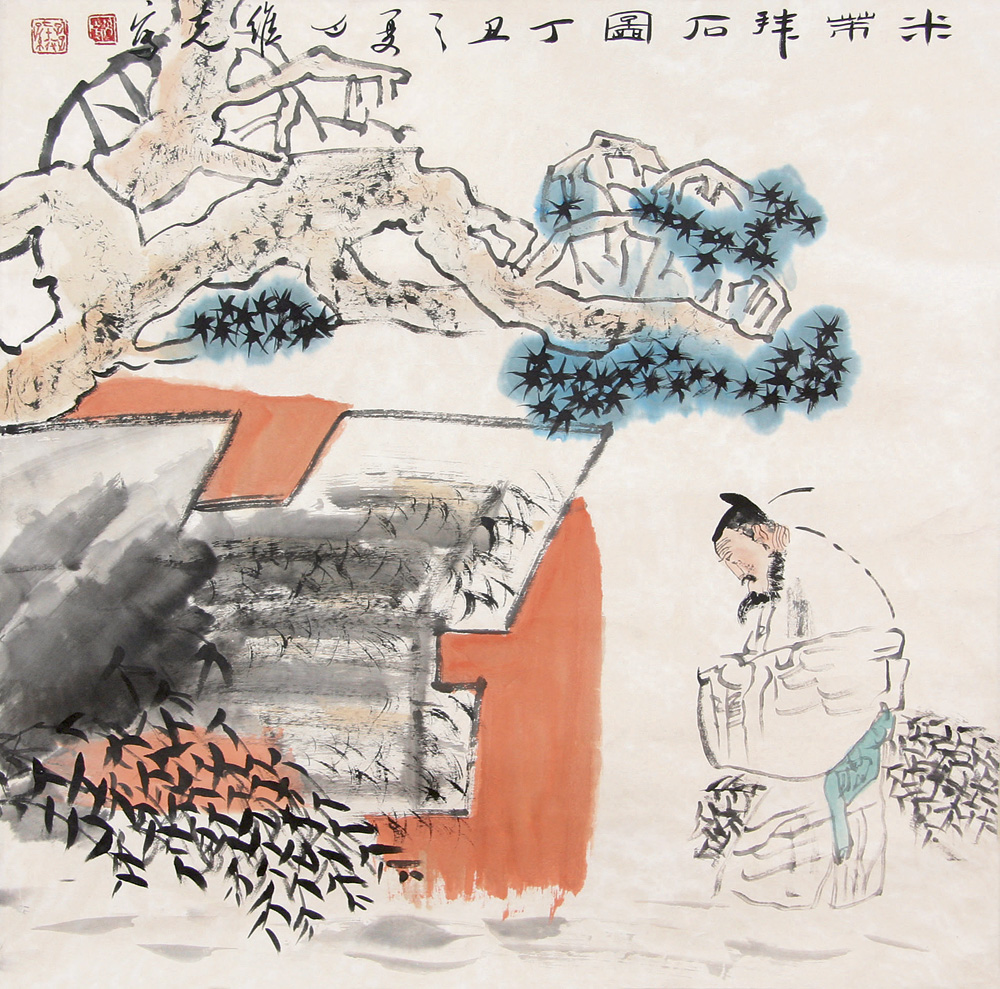 米芾拜石圖丁丑之夏 維克寫